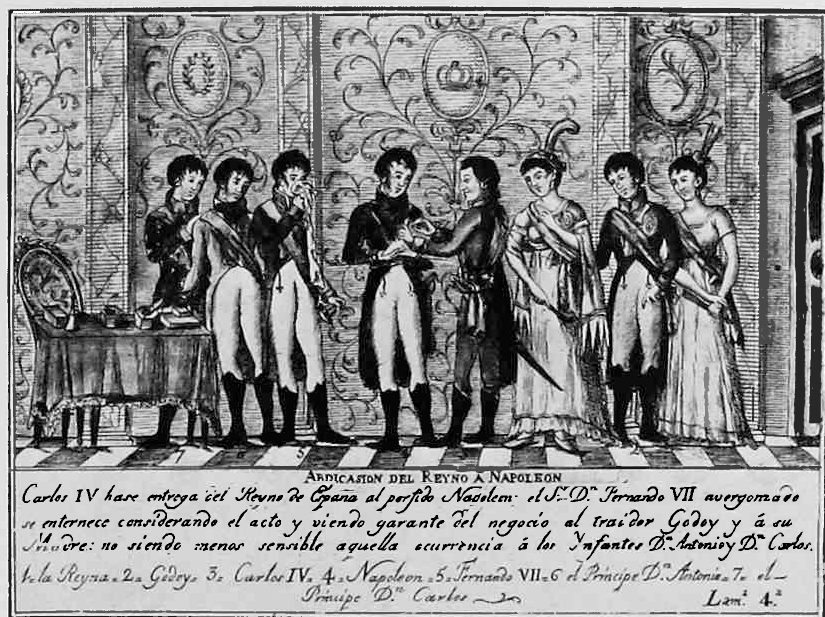 7 6 5
2
ABDICASION DEL REYNO A NAPOLEON
Carlos IV hase entrega del Reyno de España al perfido Napoleon: el S.r D.n Fernando VII avergomado
se enternece considerando el acto y viendo garante del negocio al traidor Godoy y á su
Madre: no siendo menos sensible aquella ocurrencia á los Ynfantes D.n Antonio y D.n Carlos.
1= la Reyna = 2= Godoy = 3= Carlos IV = 4= Napoleon = 5= Fernando VII = 6 el Principe D.n Antonio = 7= el
Principe D.n Carlos
Lam.a 4.a